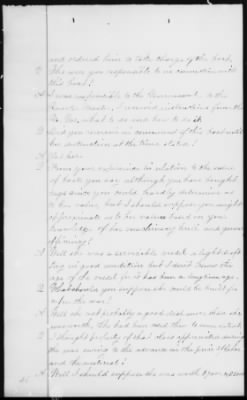 and ordered him to take charge of the boat.
Q Who were you responsible to in connection with
this boat?
A I was responsible to the Government, to the
Quarter Master, I received instructions from the
Qr. Mr. what to do and how to do it.
Q Did you remain in command of this boat until
her destruction at the time stated?
A Yes sir.
Q From your experience in relation to the value
of boats you say although you have bought
none since you could hardly determine as
to her value, but I should suppose you might
approximate to her value based on your
knowledge of her machinery built and general
A Well she was a serviceable vessel a light draft
tug in good condition but I don't know the
age of the vessel for it has been a long time ago.
Q What should you suppose she could be built for
after the war?
A Well she not probably a good deal more than she
was worth. She had been used then to some extent.
Q I thought probably if that does appreciated during
the war owing to the advance in the price of labor
and the material?
A Well I should suppose she was worth